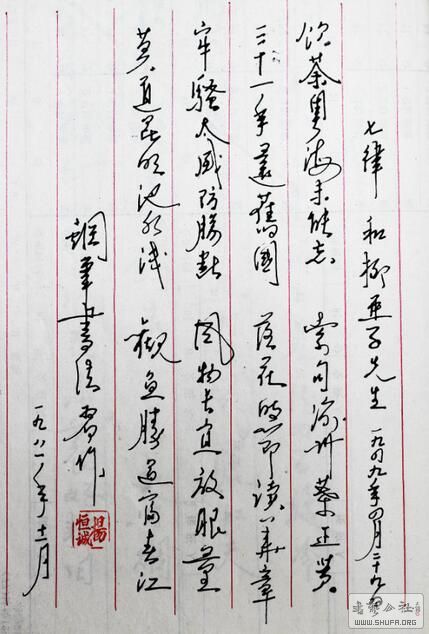 七律 和柳亚子先生 一九四九年四月二十九日
饮茶粤海未能忘 索句渝州葉正黄
三十一年還舊國 落花时节读华章
牢騷太盛防腸断 风物长宜放眼量
莫道昆明池水浅 觀鱼勝过富春江
鋼笔书法習作
一九八一年十一月
WWW.SHUFA.ORG